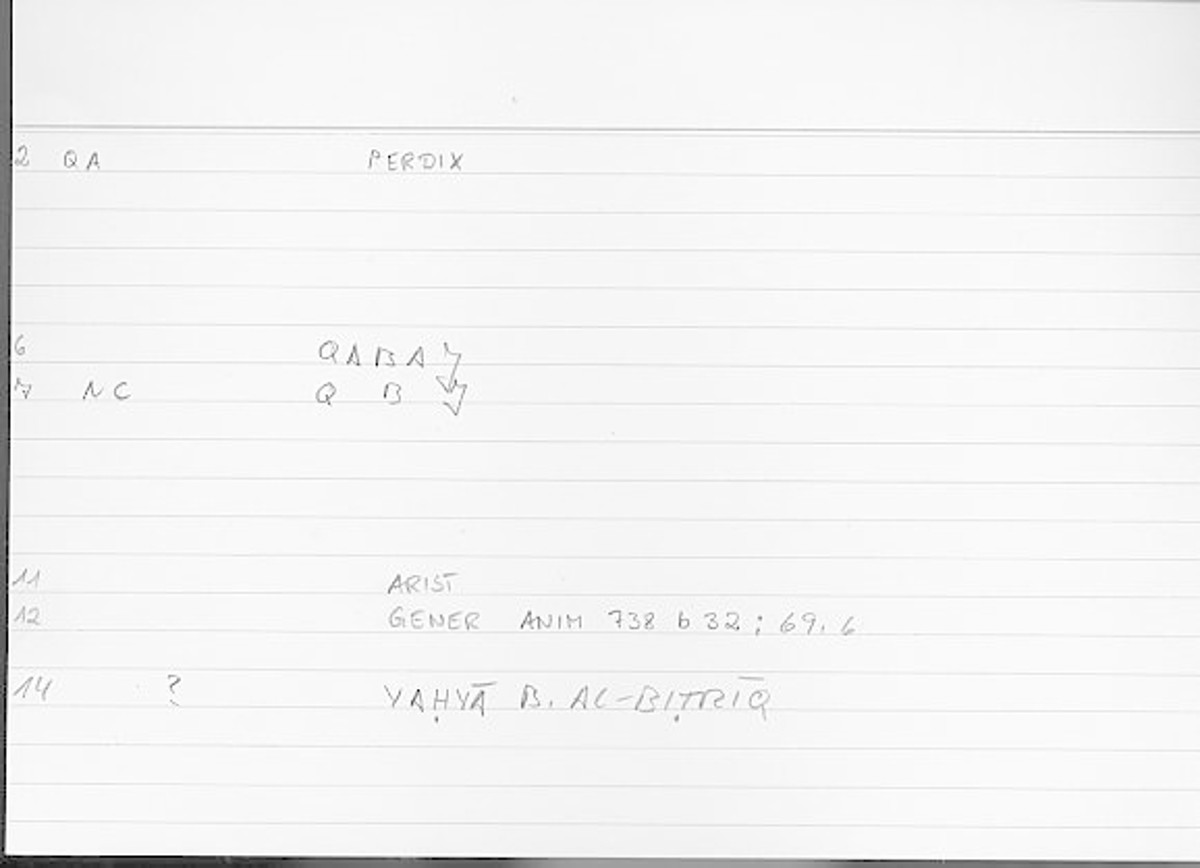 2 QA PERDIX
6 QABA
7 NC Q B
11 ARIST
12 GENER ANIM 738 b 32 ; 69. 6
14 ? YAḤYĀ B. AL-BIṬRĪQ